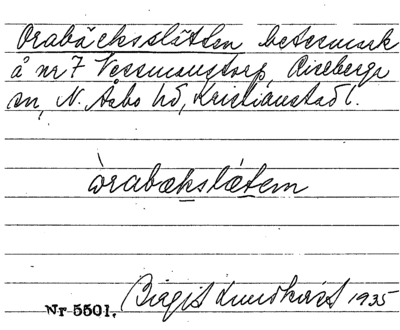 Orabäcksslätten betesmark
å nr 7 Vessmanstorp, Riseberga
sn, N. Åsbo hd, Kristianstad l.
òrabækslætem
Nr 5501. Birgit Lundkvist 1935